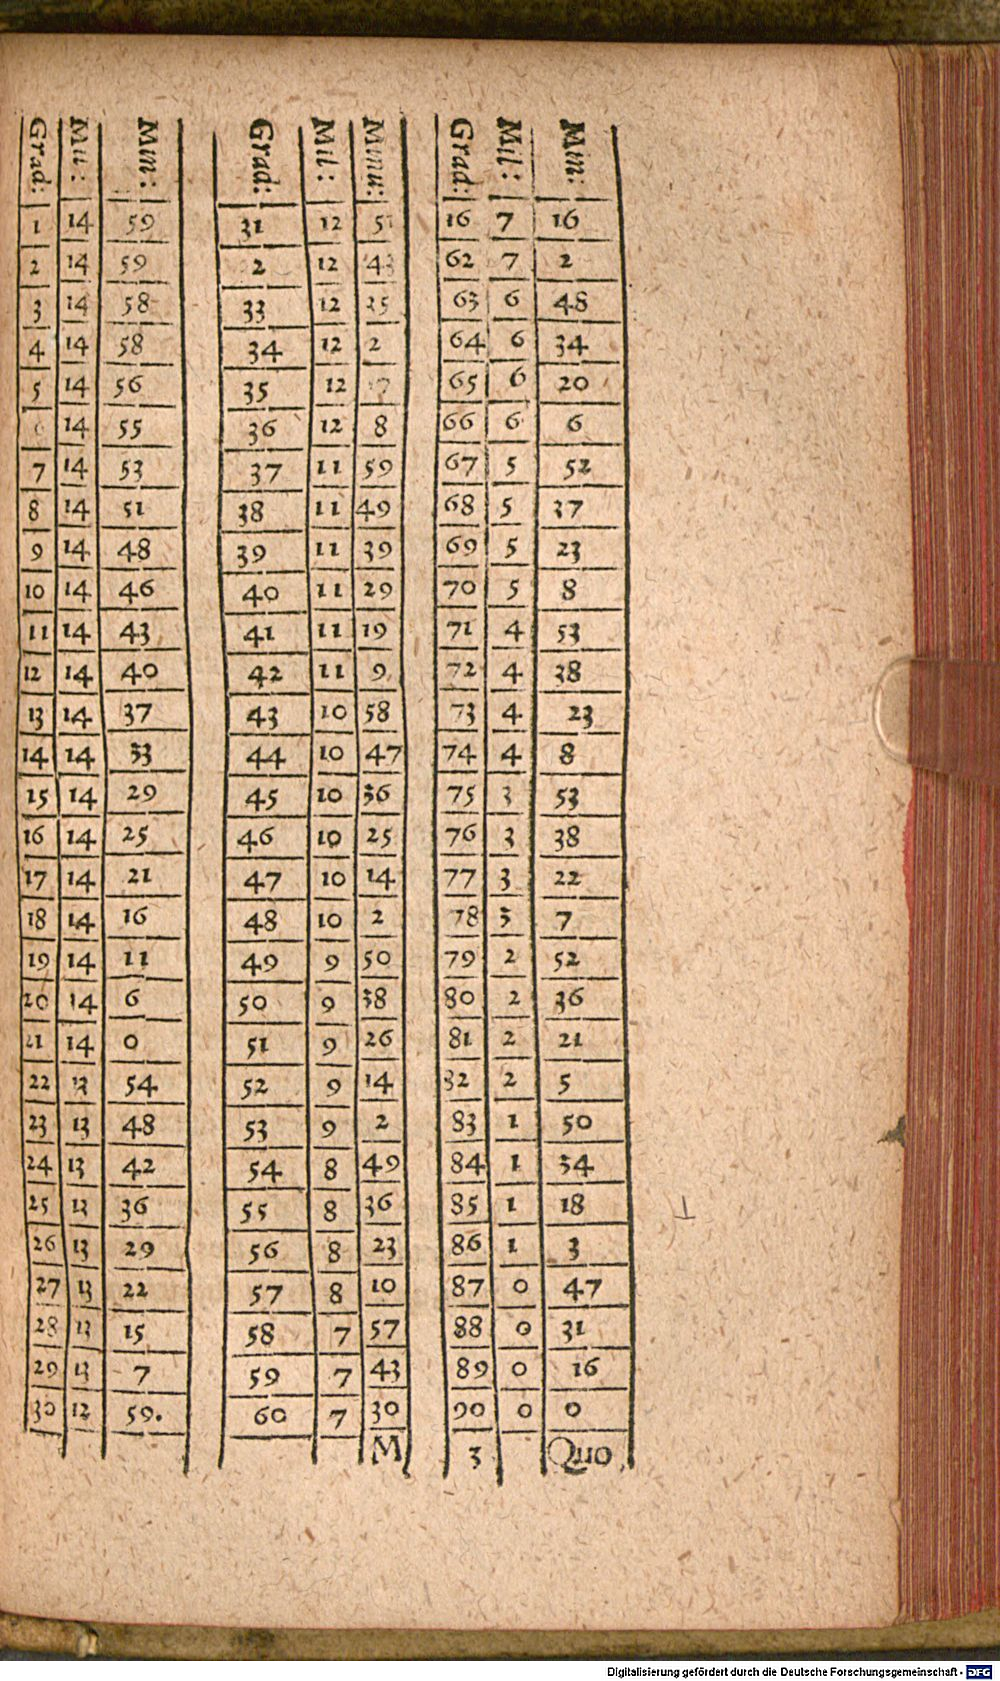 Grad: Mil: Min: Grad: Mil: Minu: Grad: Mil: Min:
1 14 59 31 12 16 7 16
2 14 59 2 12 62 7 2
3 14 58 33 12 35 63 6 48
4 14 58 34 12 2 64 6 34
5 14 56 35 12 7 65 6 20
14 55 36 12 8 66 6 6
7 14 53 37 11 59 67 5 52
8 14 51 38 11 49 68 5 37
9 14 48 39 11 39 69 5 23
10 14 46 40 11 29 70 5 8
11 14 43 41 11 19 71 4 53
12 14 40 42 11 9 72 4 38
13 14 37 43 10 58 73 4 23
14 14 33 44 10 47 74 4 8
15 14 29 45 10 36 75 3 53
16 14 25 46 10 25 76 3 38
17 14 21 47 10 14 77 3 22
18 14 16 48 10 2 78 3 7
19 14 11 49 9 50 79 2 52
20 14 6 50 9 38 80 2 36
21 14 0 51 9 26 81 2 21
22 13 54 52 9 14 82 2 5
23 13 48 53 9 2 83 1 50
24 13 42 54 8 49 84 1 34
25 13 36 55 8 36 85 1 18
26 13 29 56 8 23 86 1 3
27 13 22 57 8 10 87 0 47
28 13 15 58 7 57 88 0 31
29 13 7 59 7 43 89 0 16
30 12 59. 60 7 30 90 0 0
M 3 Quo
Digitalisierung gefördert durch die Deutsche Forschungsgemeinschaft - DFG